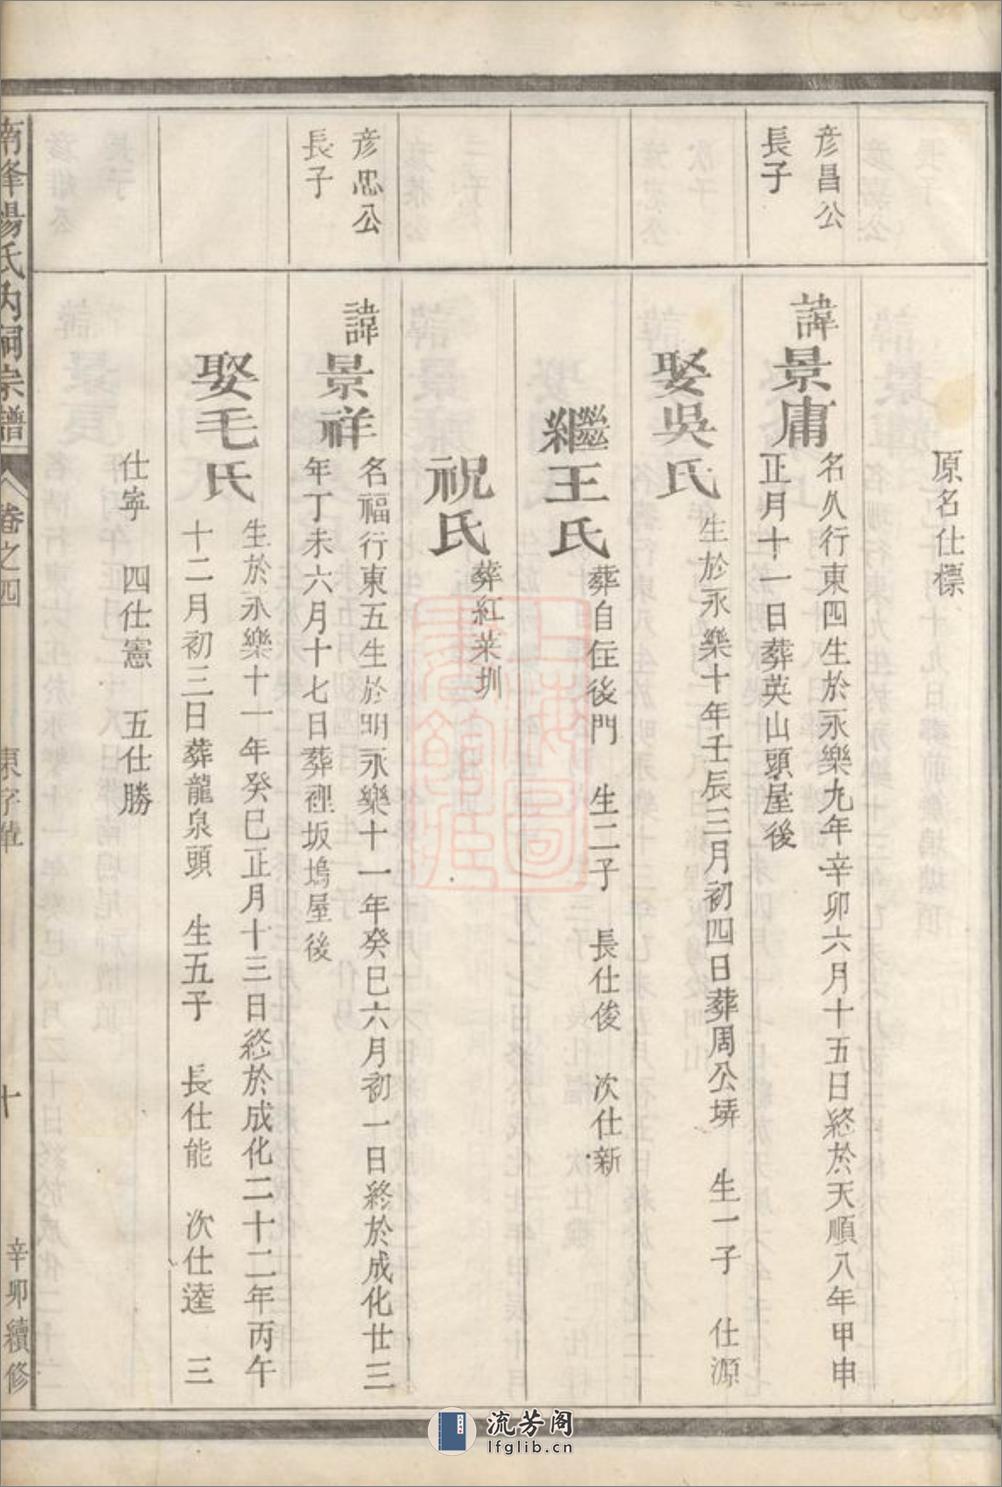 原名仕標
彥昌公
長子
諱景庸
名久行東四生於永樂九年辛卯六月十五日終於天順八年甲申
正月十一日葬英山頭屋後
娶吳氏
生於永樂十年壬辰三月初四日葬周公塝 生一子 仕源
繼王氏
葬自住後門 生二子 長仕俊 次仕新
祝氏
葬紅菜圳
彥思公
長子
諱景祥
名福行東五生於明永樂十一年癸巳六月初一日終於成化廿三
年丁未六月十七日葬裡坂塢屋後
娶毛氏
生於永樂十一年癸巳正月十三日終於成化二十二年丙午
十二月初三日葬龍泉頭 生五子 長仕能 次仕逵 三
仕寧 四仕憲 五仕勝
南峰楊氏內祠宗譜
卷之四
東字華
十
辛卯續修
流芳阁
lfglib.cn